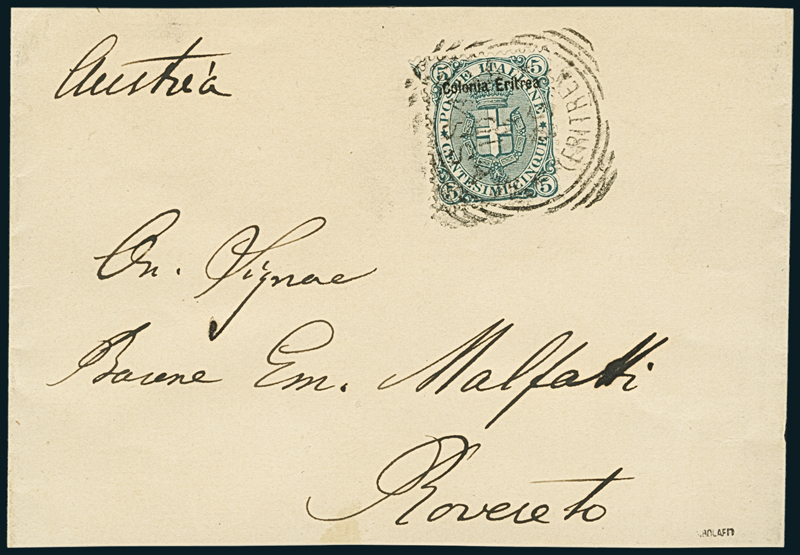 Austria
5 POSTE ITALIANE 5
Colonia Eritrea
5 CENTESIMI CINQUE 5
(ERITREA
On. Signor
Barone Em. Malfatti
Rovereto